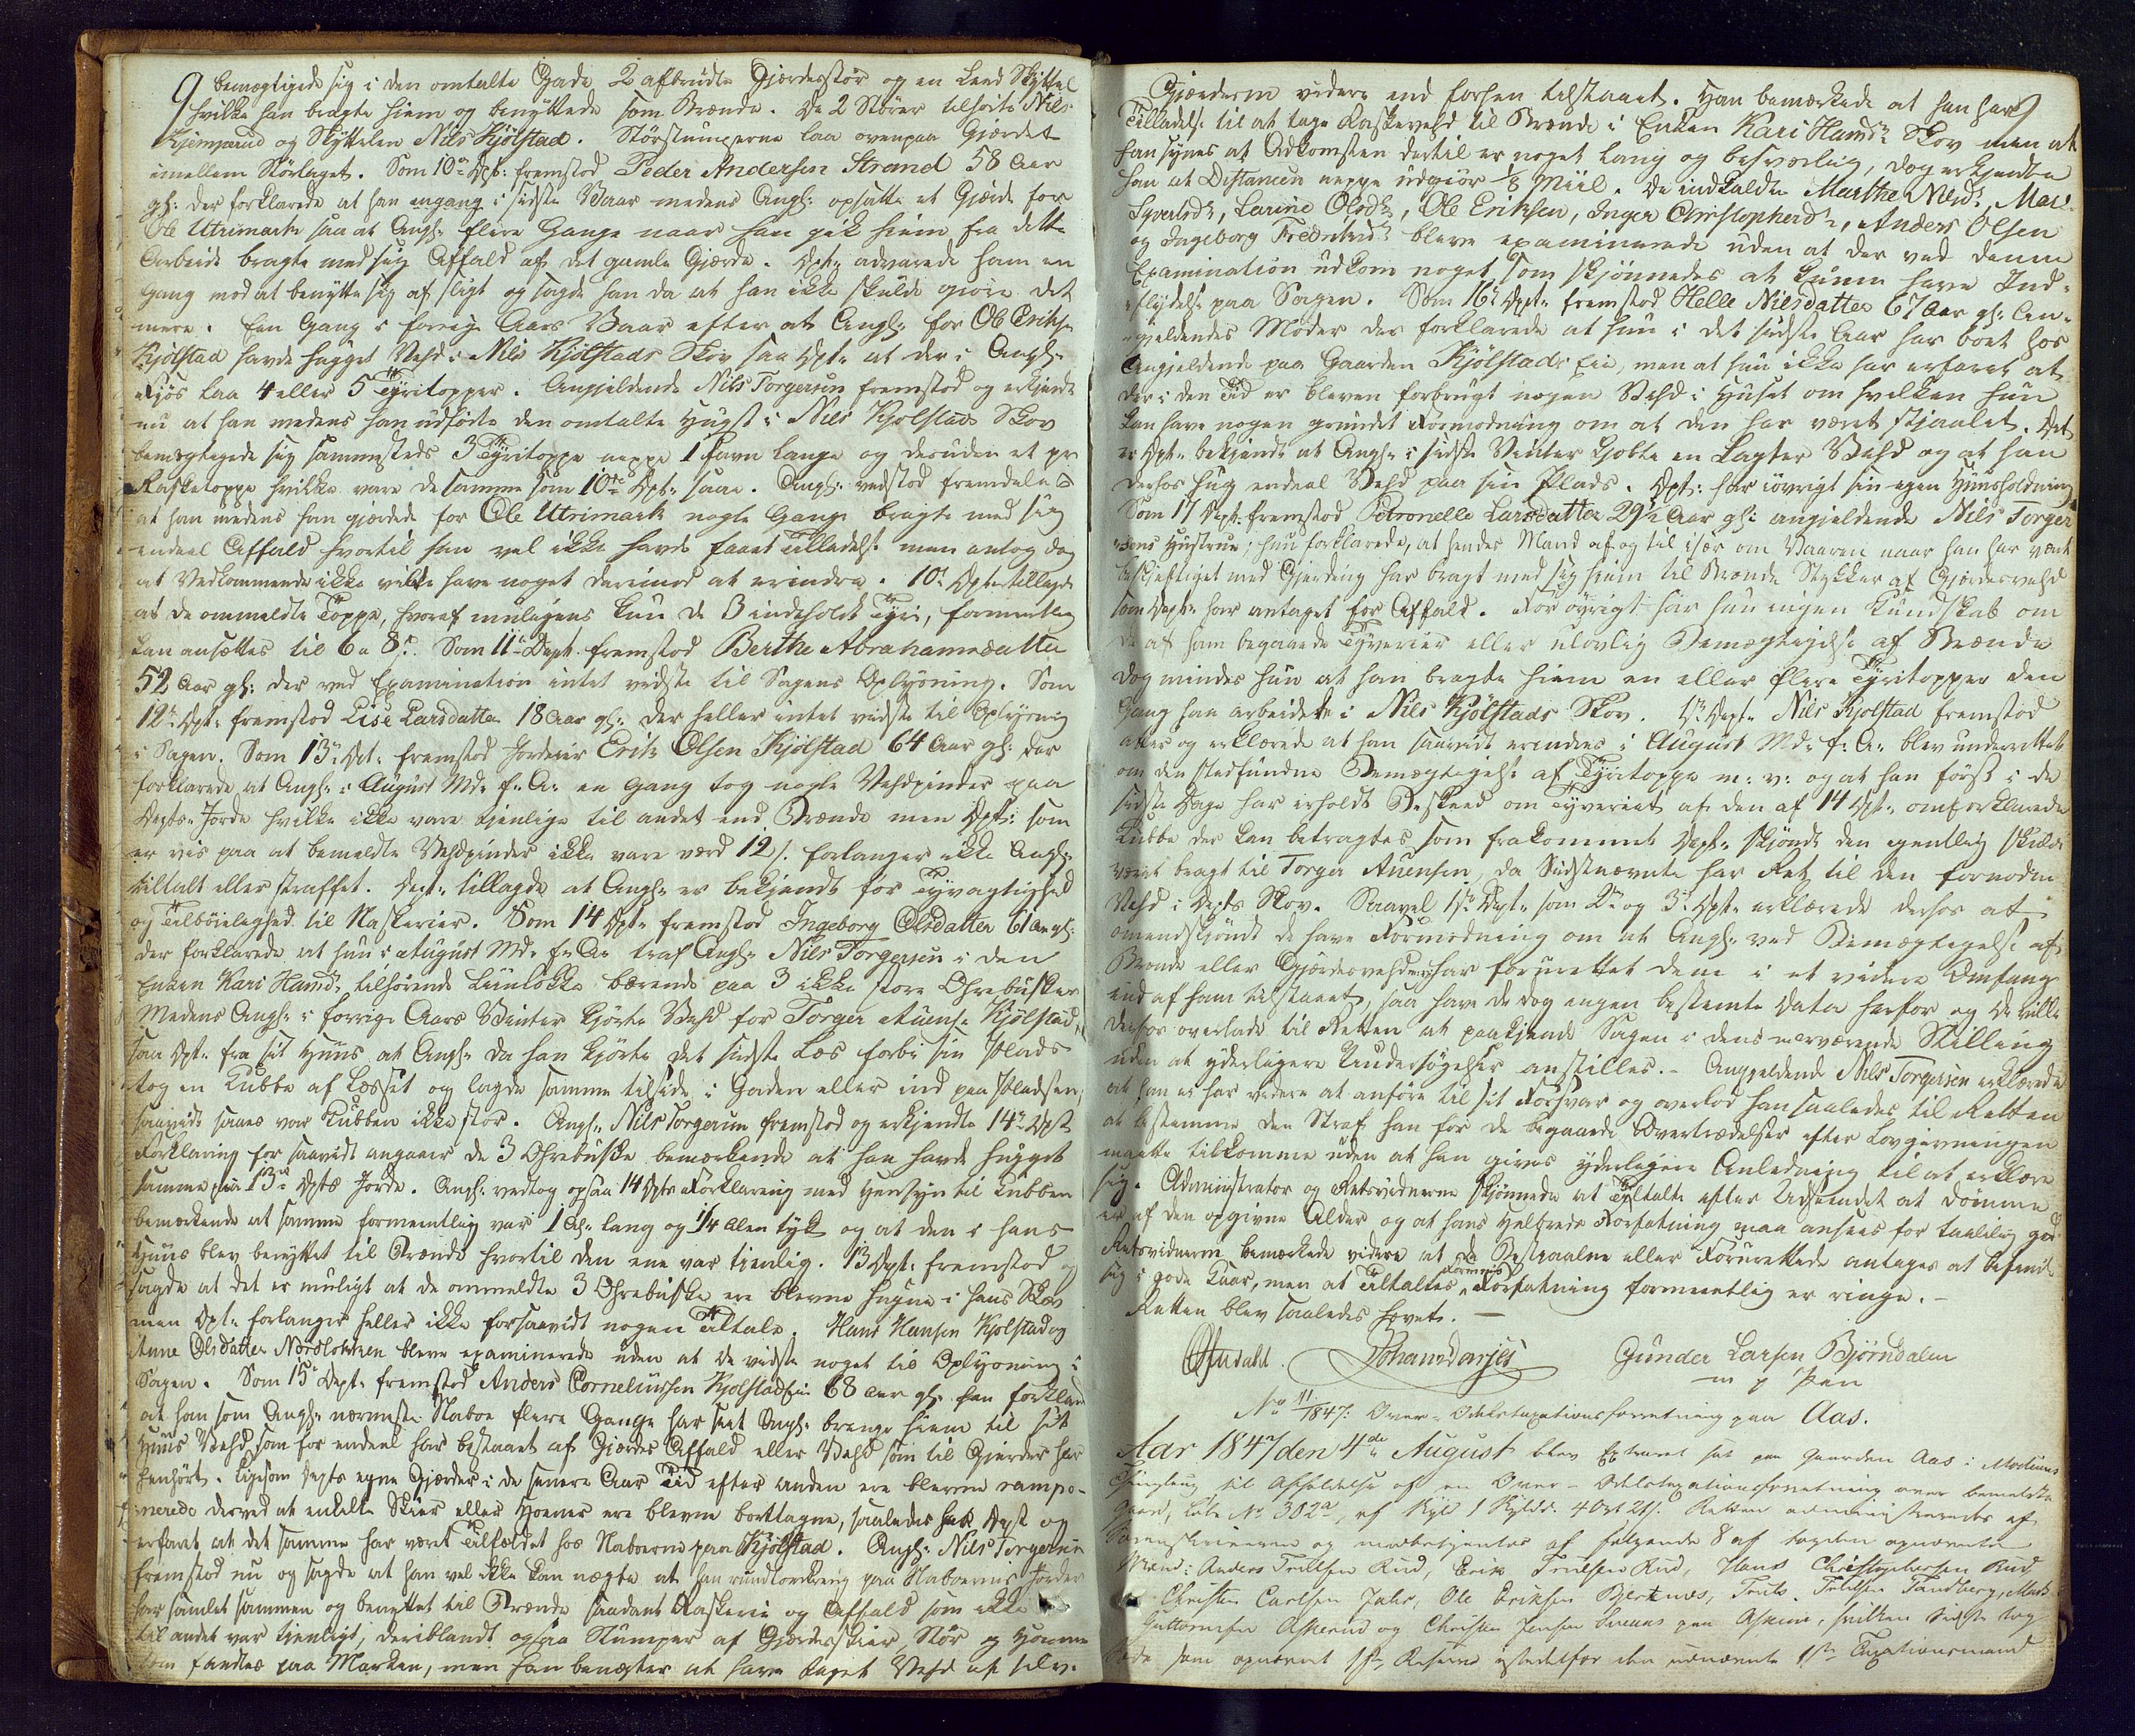 9 bemægtigede sig i den omtalte Gade 2 afbrudte Gjærdesstør og en Leed Skyttel
hvilke han bragte hiem og benyttede som Brænde. De 2 Stører tilhørte Nils
Kjemperud og Skyttelen Nils Kjölstad. Störstumperne laa ovenpaa Gjerdet
imellem Störlaget. Som 10de Dept: fremstod Peder Andersen Strand 58 Aar
gl: der forklarede at han engang i sidste Vaar medens Angl: opsatte et Gjærde for
Ole Utrimark saa at Angl: flere Gange naar han gik hiem fra dette
Arbeide bragte med sig Affald af det gamle Gjærde. Dept: advarede ham en
Gang mod at benytte sig af sligt og sagde han da at han ikke skulde giøre det
mere. Een Gang i forrige Aars Vaar efter at Angl: for Ole Eriks.
Kjölstad havde hugget Vehd i Nils Kjölstads Skov saa Dpt: at der i Angl:
Fjøs laa 4 eller 5 Tyritopper. Angjeldende Nils Torgersen fremstod og erkjendte
nu at han medens han udførte den omtalte Hugst i Nils Kjölstads Skov
bemægtigede sig sammesteds 3 Tyritoppe neppe 1 Favn lange og desuden et par
Rasketoppe hvilke vare de samme som 10de Dpt: saae. Angl: vedstod fremdeles
at han medens han gjærdede for Ole Utrimark nogle Gange bragte med sig
endeel Affald hvortil han vel ikke havde faaet Tilladelse men antog dog
at Vedkommende ikke vilde have noget derimod at erindre. 10de Dpt: tillagde
at de ommeldte Toppe, hvoraf muligens kun de 3 indeholdt Tyri, formentlig
kan ansættes til 6 a 8 s. Som 11te Dept. fremstod Berthe Abrahamsdatter
52 Aar gl: der ved Examination intet vidste til Sagens Oplysning. Som
12te Dpt: fremstod Lise Larsdatter 18 Aar gl: der heller intet vidste til Oplysning
i Sagen. Som 13de Dpt: fremstod Jordeier Erik Olsen Kjölstad 64 Aar gl: der
forklarede at Angl: i August Md: f: A: en Gang tog nogle Vehdpinder paa
Depts: Jorde hvilke ikke vare tjenlige til andet end Brænde men Dpt: som
er vis paa at bemeldte Vehdpinder ikke vare værd 12 s. forlanger ikke Angl:
tiltalt eller straffet. Dept: tillagde at Angl: er bekjendt for Tyvagtighed
og Tilbøielighed til Naskerier. Som 14 Dpt: fremstod Ingeborg Olsdatter 61 Aar gl:
der forklarede at hun i August Md: f: A: traf Angl: Nils Torgersen i den
Enken Kari Hansd: tilhørende Liinløkke bærende paa 3 ikke store Ohrebuske
Medens Angl: i forrige Aars Vinter kjørte Vehd for Torger Auens: Kjölstad
saa Dpt: fra sit Huus at Angl: da han kjørte det sidste Læs forbi sin Plads
tog en Kubbe af Læsset og lagde samme tilside i Gaden eller ind paa Pladsen,
saavidt saaes var Kubben ikke stor. Angl: Nils Torgersen fremstod og erkjendte 14de Dpts
Forklaring for saavidt angaaer de 3 Ohrebuske bemærkende at han havde hugget
samme paa 13de Dpts Jorde. Angl: vedtog ogsaa 14 Dpts Forklaring med Hensyn til Kubben
bemærkende at samme formentlig var 1 Al: lang og 1/4 Alen tyk og at den i hans
Huus blev benyttet til Brænde hvortil den ene var tjenlig. 13 Dpt: fremstod og
sagde at det er muligt at de ommeldte 3 Ohrebuske ere blevne hugne i hans Skov
men Dpt: forlanger heller ikke forsaavidt nogen Tiltale. Hans Hansen Kjölstad og
Anne Olsdatter Nordlokken bleve examinerede uden at de vidste noget til Oplysning i
Sagen. Som 15de Dept: fremstod Anders Corneliussen Kjölstadeie 68 Aar gl: han forklarede
at han som Angl: nærmeste Naboe flere Gange har seet Angl: bringe hiem til sit
Huus Vehd som for endeel har bestaaet af Gjerdes Affald eller Vehd som til Gjerder har
henhørt. Ligesom Depts egne Gjærder i de senere Aar Tid efter anden ere blevne rampo-
nerede derved at enkelte Skier eller Honner ere blevne borttagne, saaledes har Dpt og
erfaret at det samme har været Tilfældet hos Naboerne paa Kjölstad. Angl: Nils Torgersen
fremstod nu og sagde at han vel ikke kan nægte at han rundtomkring paa Naboernes Jorder
har samlet sammen og benyttet til Brænde saadant Raskerie og Affald som ikke
til andet var tjenligt, deriblandt ogsaa Stumper af Gjærdeskier, Stör og Honner
som fandtes paa Marken, men han benægter at have taget Vehd af selve
Gjærderne videre end forhen tilstaaet. Han bemærkede at han har
Tilladelse til at tage Raskevehd til Brænde i Enken Kari Hansd: Skov men at
han synes at Adkomsten dertil er noget lang og besværlig, dog erkjendte
han at Distancen neppe udgiør 1/8 Miil. De indkaldte Marthe Nilsd:, Mari
Syvertsd:, Larine Olsd:, Ole Eriksen, Inger Christophersd:, Anders Olsen
og Ingeborg Fredriksd: bleve examinerede uden at der ved denne
Examination udkom noget, som skjønnedes at kunne have Ind-
flydelse paa Sagen. Som 16de Dpt: fremstod Helle Nilsdatter 67 Aar gl: An-
gjeldendes Moder der forklarede at hun i det sidste Aar har boet hos
Angjeldende paa Gaarden Kjölstads Eie, men at hun ikke har erfaret at
der i den Tid er bleven forbrugt nogen Vehd i Huset om hvilken hun
kan have nogen grundet Formodning om at den har været stjaalet. Det
er Dpt: bekjendt at Angl: i sidste Vinter kjøbte en Lagter Vehd og at han
derhos hug endeel Vehd paa sin Plads. Dpt: har iøvrigt sin egen Huusholdning
Som 17 Dept: fremstod Petronelle Larsdatter 29½ Aar gl: angjeldende Nils Torger-
sens Hustrue; hun forklarede, at hendes Mand af og til især om Vaaren naar han har været
beskjæftiget med Gjerding har bragt med sig hiem til Brænde Stykker af Gjærdesvehd
som Dept: har antaget for Affald. For øvrigt har hun ingen Kundskab om
de af ham begaaede Tyverier eller ulovlig Bemægtigelse af Brænde
dog mindes hun at han bragte hiem en eller flere Tyritopper den
Gang han arbeidede i Nils Kjölstads Skov. 1ste Dept: Nils Kjölstad fremstod
atter og erklærede at han saavidt erindres i August Md: f: A: blev underrettet
om den stedfundne Bemægtigelse af Tyritoppe m: v: og at han først i de
sidste Dage har erholdt Beskeed om Tyveriet af den af 14 Dpt: omforklarede
Kubbe der kan betragtes som frakommet Dept: skjøndt den egentlig skulde
været bragt til Torger Auensen, da Sidstnævnte har Ret til den fornødne
Vehd i Depts Skov. Saavel 1ste Dept: som 2de og 3de Dpt: erklærede derhos at
omendskjøndt de have Formodning om at Angl: ved Bemægtigelse af
Brænde eller Gjærdesvehd har forurettet dem i et videre Omfang
end af ham tilstaaet, saa have de dog ingen bestemte Data herfor og de ville
derfor overlade til Retten at paakjende Sagen i dens nærværende Stilling
uden at yderligere Undersøgelser anstilles. - Angjeldende Nils Torgersen erklærede
at han ei har videre at anføre til sit Forsvar og overlod han saaledes til Retten
at bestemme den Straf han for de begaaede Overtrædelser efter Lovgivningen
maatte tilkomme uden at han gives yderligere Anledning til at erklære
sig. Administrator og Retsvidnerne skjønnede at Tiltalte efter Udseendet at dømme
er af den opgivne Alder og at hans Helbreds Forfatning maa ansees for taalelig god
Retsvidnerne bemærkede videre at de Bestjaalne eller Forurettede antages at befinde
sig i gode Kaar, men at Tiltaltes Formues Forfatning formeentlig er ringe. -
Retten blev saaledes hævet. -
Johan Danjel
Gunder Larsen Bjørndalen
m p Pen
No 11/1847: Over-Odelstaxationsforretning paa Aas.
Aar 1847 den 4de August blev Extraret sat paa Gaarden Aas i Modums
Thinglaug til Afholdelse af en Over-Odelstaxationsforretning over bemeldte
Gaard, Løbe No 302a, af Skyld 1 Skyldd: 4 Ort 21 s. Retten administreredes af
Sorenskriveren og medbetjentes af følgende 8 af Fogden opnævnte
Mænd: Anders Truelsen Rud, Erik Truelsen Rud, Hans Christophersen Rud,
Christen Carlsen Jahr, Ole Eriksen Bjertnæs, Truls Truelsen Sandberg,
Guttormsen Askerud og Christen Jensen paa Askim, hvilken Sidste tog
Sæde som opnævnt 1ste Reserve istedetfor den udnævnte 1ste Taxationsmand